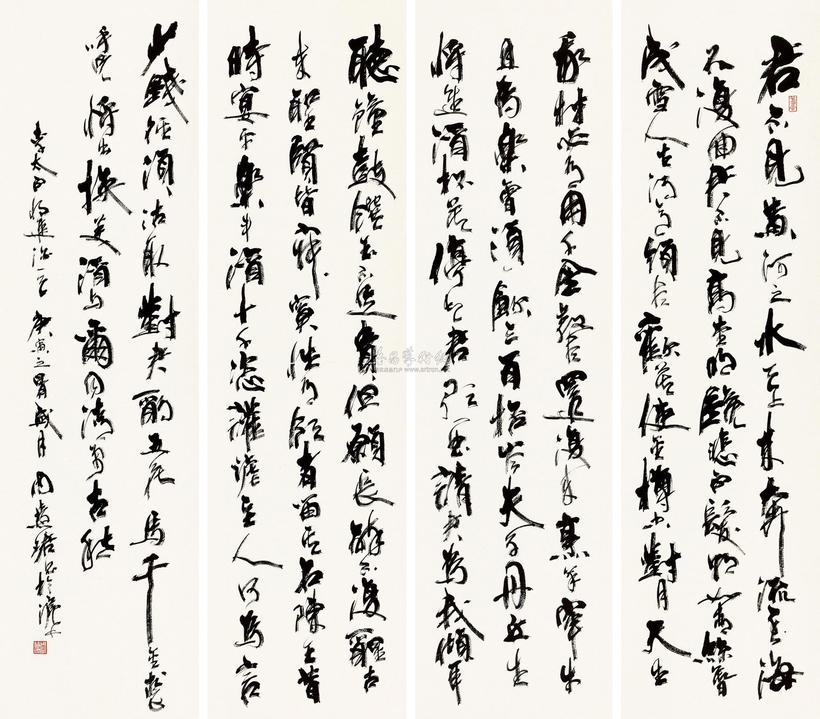 君不見黃河之水天上來奔流至海
不復回君不見高堂明鏡悲白髮朝如青絲暮
成雪人生得意須盡歡莫使金樽空對月天生
我材必有用千金散盡還復來烹羊宰牛
且為樂會須一飲三百杯岑夫子丹丘生
將進酒杯莫停與君歌一曲請君為我傾耳
聽鐘鼓饌玉不足貴但願長醉不復醒古
來聖賢皆寂寞惟有飲者留其名陳王昔
時宴平樂斗酒十千恣讙謔主人何為言
少錢徑須沽取對君酌五花馬千金裘
呼兒將出換美酒與爾同消萬古愁
李太白將進酒一首庚寅之月周慧珺書於滬上